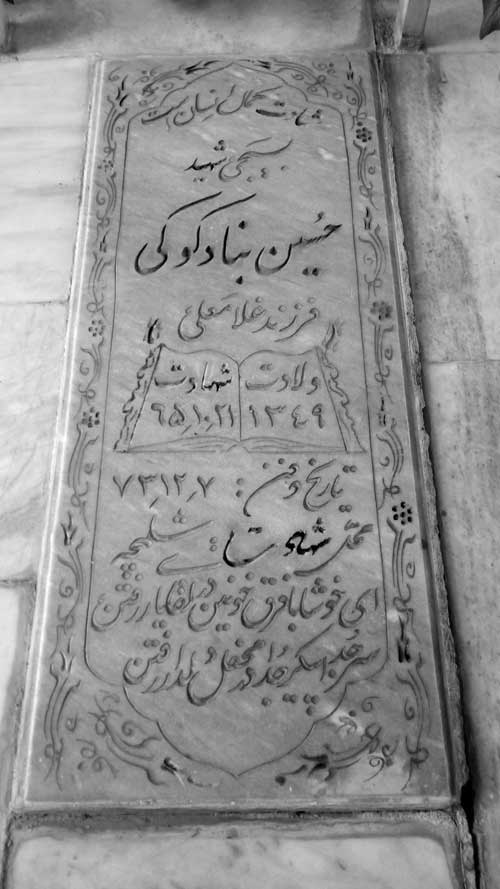 شهادت کمال انسان است
بسیجی شهید
حسین بنادکوکی
فرزند غلامعلی
ولادت شهادت
۱۳۴۹ ۶۵٫۱۰٫۲۱
تاریخ دفن : ۷۳٫۱۲٫۷
محل شهادت : شلمچه
ای خوشا با فرق خونین در لقای یار رفتن
سر جدا پیکر جدا در محفل دلدار رفتن